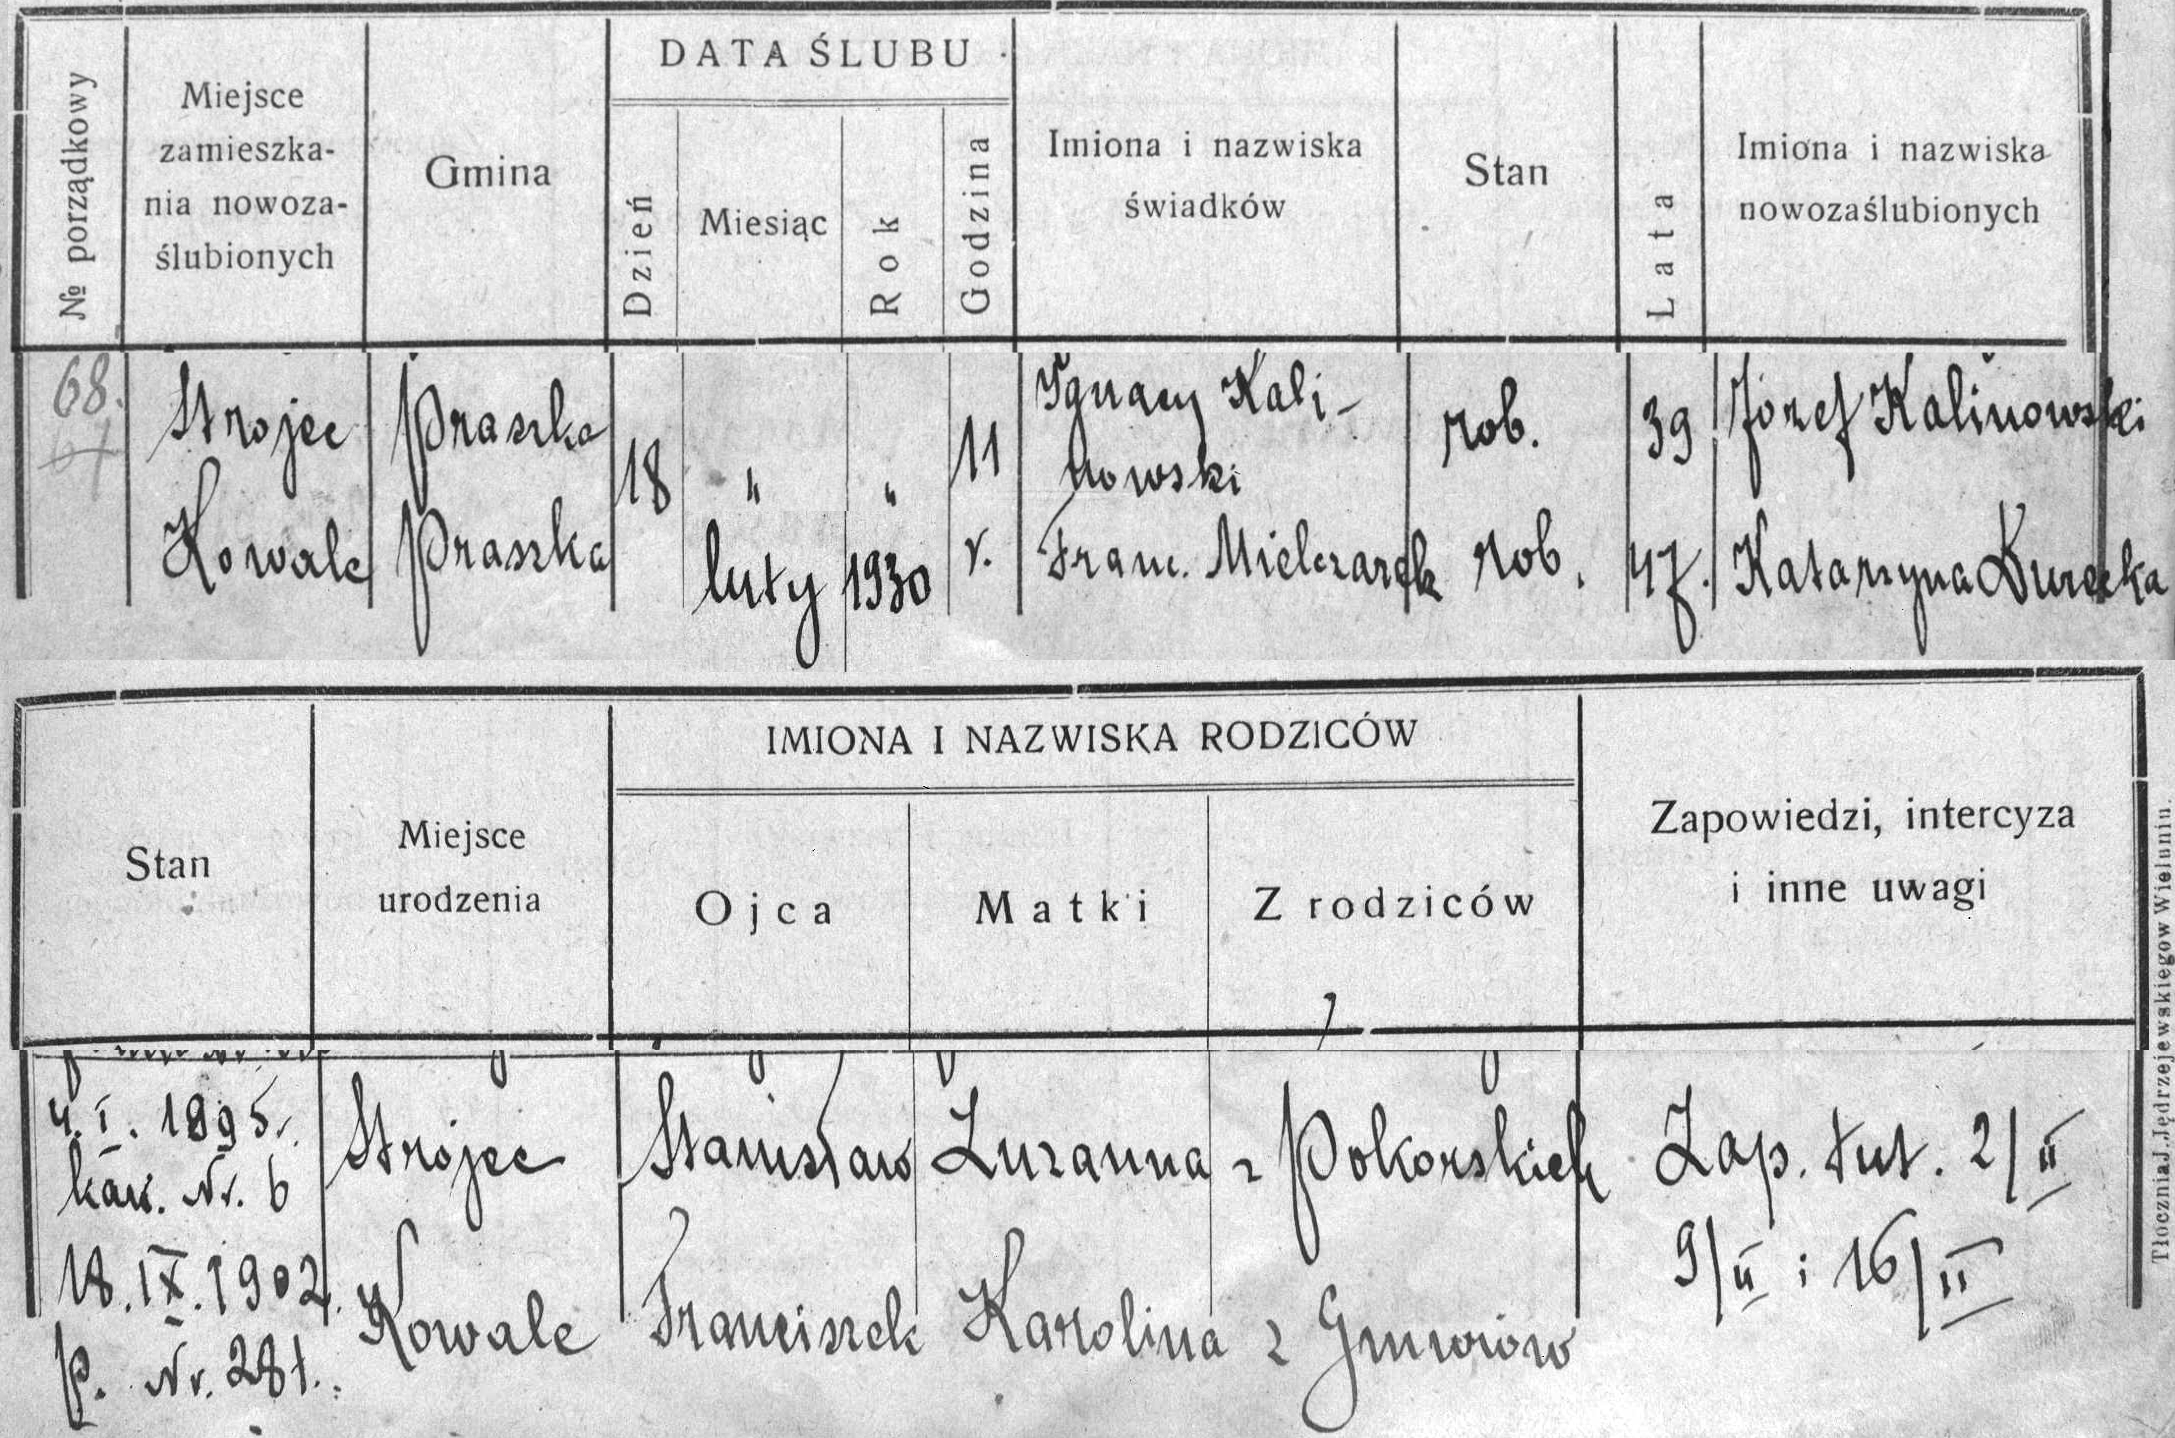 DATA ŚLUBU
№ porządkowy
Miejsce
zamieszka-
nia nowoza-
ślubionych
Gmina
Dzień
Miesiąc
Rok
Godzina
Imiona i nazwiska
świadków
Stan
Lata
Imiona i nazwiska
nowozaślubionych
68.
Strojec Praszka 18 " " 11 Ignacy Kali-
nowski rob. 39 Józef Kalinowski
Kowale Praszka luty 1930 r. Franc. Mielczarek rob. 47. Katarzyna Durecka
IMIONA I NAZWISKA RODZICÓW
Stan
Miejsce
urodzenia
Ojca
Matki
Z rodziców
Zapowiedzi, intercyza
i inne uwagi
4. I. 1895.
kaw. Nr. 6
Strojec Stanisław Zuzanna z Pokorskich Zap. tut. 2/II
9/II i 16/II
18. IX. 1902.
p. Nr. 281.
Kowale Franciszek Karolina z
Tłocznia J. Jędrzejewskiego w Wieluniu.